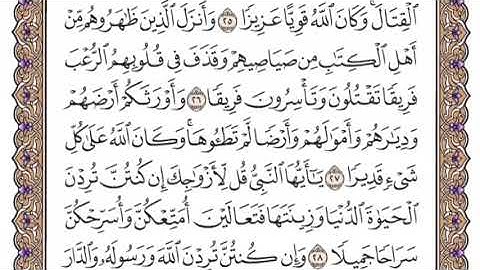 ٱلۡقِتَالَۚ وَكَانَ ٱللَّهُ قَوِيًّا عَزِيزٗا ٢٥ وَأَنزَلَ ٱلَّذِينَ ظَٰهَرُوهُم مِّنۡ
أَهۡلِ ٱلۡكِتَٰبِ مِن صَيَاصِيهِمۡ وَقَذَفَ فِي قُلُوبِهِمُ ٱلرُّعۡبَ
فَرِيقٗا تَقۡتُلُونَ وَتَأۡسِرُونَ فَرِيقٗا ٢٦ وَأَوۡرَثَكُمۡ أَرۡضَهُمۡ
وَدِيَٰرَهُمۡ وَأَمۡوَٰلَهُمۡ وَأَرۡضٗا لَّمۡ تَطَـُٔوهَاۚ وَكَانَ ٱللَّهُ عَلَىٰ كُلِّ
شَيۡءٖ قَدِيرٗا ٢٧ يَٰٓأَيُّهَا ٱلنَّبِيُّ قُل لِّأَزۡوَٰجِكَ إِن كُنتُنَّ تُرِدۡنَ
ٱلۡحَيَوٰةَ ٱلدُّنۡيَا وَزِينَتَهَا فَتَعَالَيۡنَ أُمَتِّعۡكُنَّ وَأُسَرِّحۡكُنَّ
سَرَاحٗا جَمِيلٗا ٢٨ وَإِن كُنتُنَّ تُرِدۡنَ ٱللَّهَ وَرَسُولَهُۥ وَٱلدَّارَ